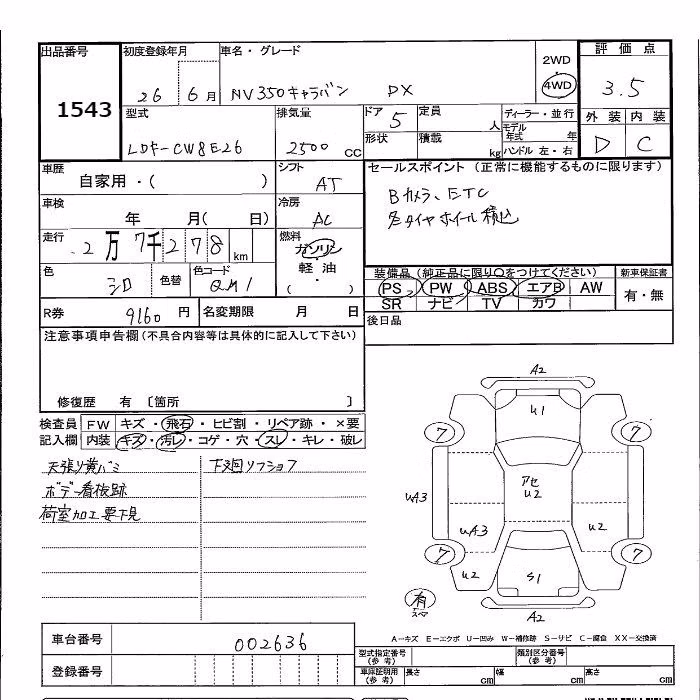 出品番号 初度登録年月 車名・グレード 2WD 評価点
4WD
1543 26 6月 NV350キャラバン DX 3.5
型式 排気量 ドア 5 定員 人 ディーラー・並行 外装 内装
モデル年式 年
LDF-CW8E26 2500 CC 形状 積載 kg ハンドル 左・右 D C
車歴 シフト セールスポイント (正常に機能するものに限ります)
自家用・( ) AT Bカメラ、ETC
車検 冷房 冬タイヤホイール積込
年 月( 日) AC
走行 2万7千278km 燃料 ガソリン
軽油
・( )
色 シロ 色替 色コード QM1
装備品 (純正品に限り○をつけてください) 新車保証書
PS PW ABS エアB AW 有・無
SR ナビ TV カワ
R券 9160 円 名変期限 月 日 後日品
注意事項申告欄(不具合内容等は具体的に記入して下さい)
修復歴 有 〔箇所 〕
検査員 FW キズ・飛石・ヒビ割・リペア跡・×要
記入欄 内装 キズ・汚レ・コゲ・穴・スレ・キレ・破レ
天張り黄バミ 下廻リフショフ
ボデー看板跡
荷室加工要下見
A2
U1
7 7
アセ
U2
UA3
UA3 U2
7 7
U2 S1
有
スペア
A2
A－キズ E－エクボ U－凹み W－補修跡 S－サビ C－腐食 XX－交換済
車台番号 002636
型式指定番号(参考) 類別区分番号(参考)
登録番号
車庫証明用(参考) 長さ cm 幅 cm 高さ cm